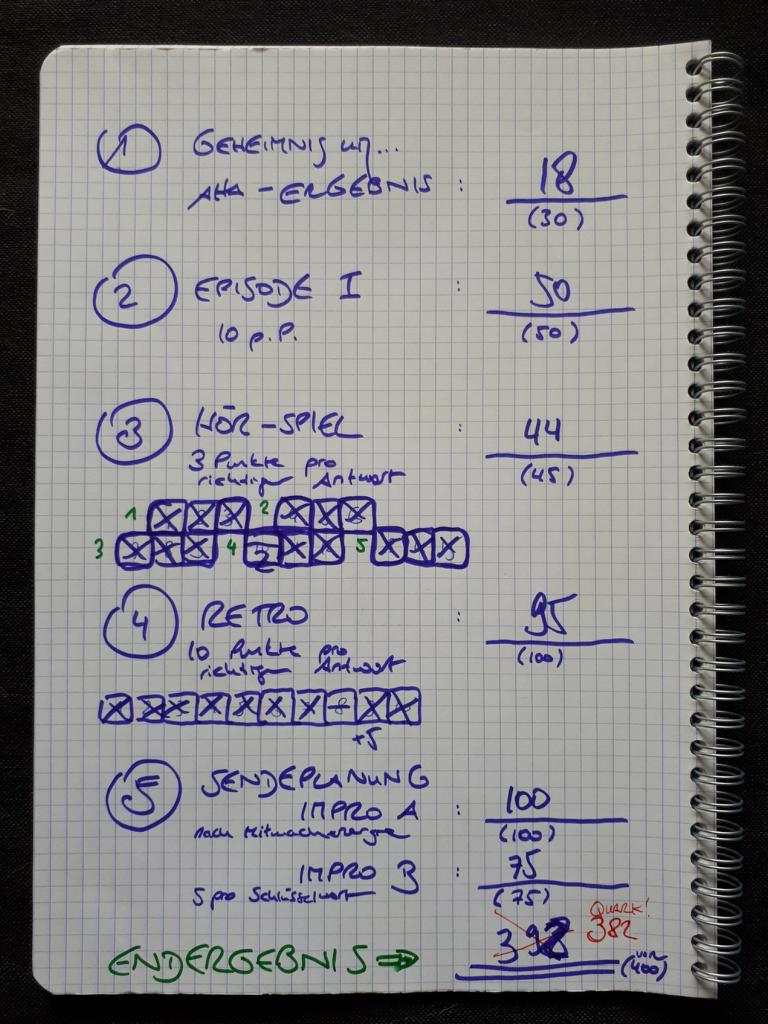 1 GEHEIMNIS um...
AHA-ERGEBNIS : 18
(30)
2 EPISODE I : 50
10 p.P. (50)
3 HÖR-SPIEL : 44
3 Punkte pro (45)
richtiger Antwort
1 2
3 4 2 5
4 RETRO : 95
10 Punkte pro (100)
richtiger Antwort
+5
5 SENDEPLANUNG
IMPRO A : 100
nach Mitmachenergie (100)
IMPRO B : 75
5 pro Schlüsselwort (75)
QUARK!
ENDERGEBNIS ⇒ 398 382
von
(400)